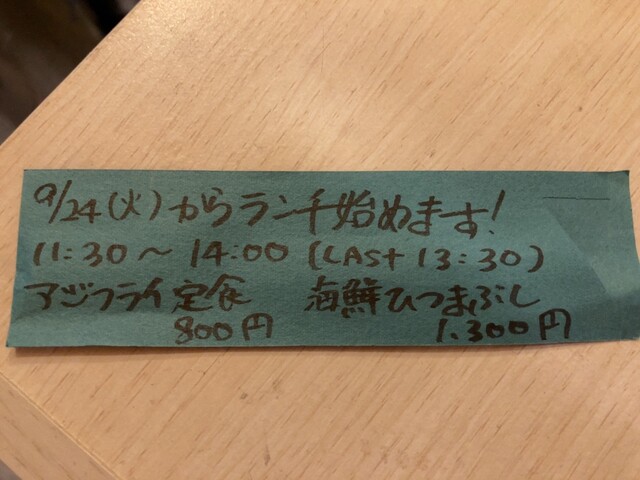 9/24(火)からランチ始めます!
11:30〜14:00(LASt 13:30)
アジフライ定食 海鮮ひつまぶし
800円 1.300円